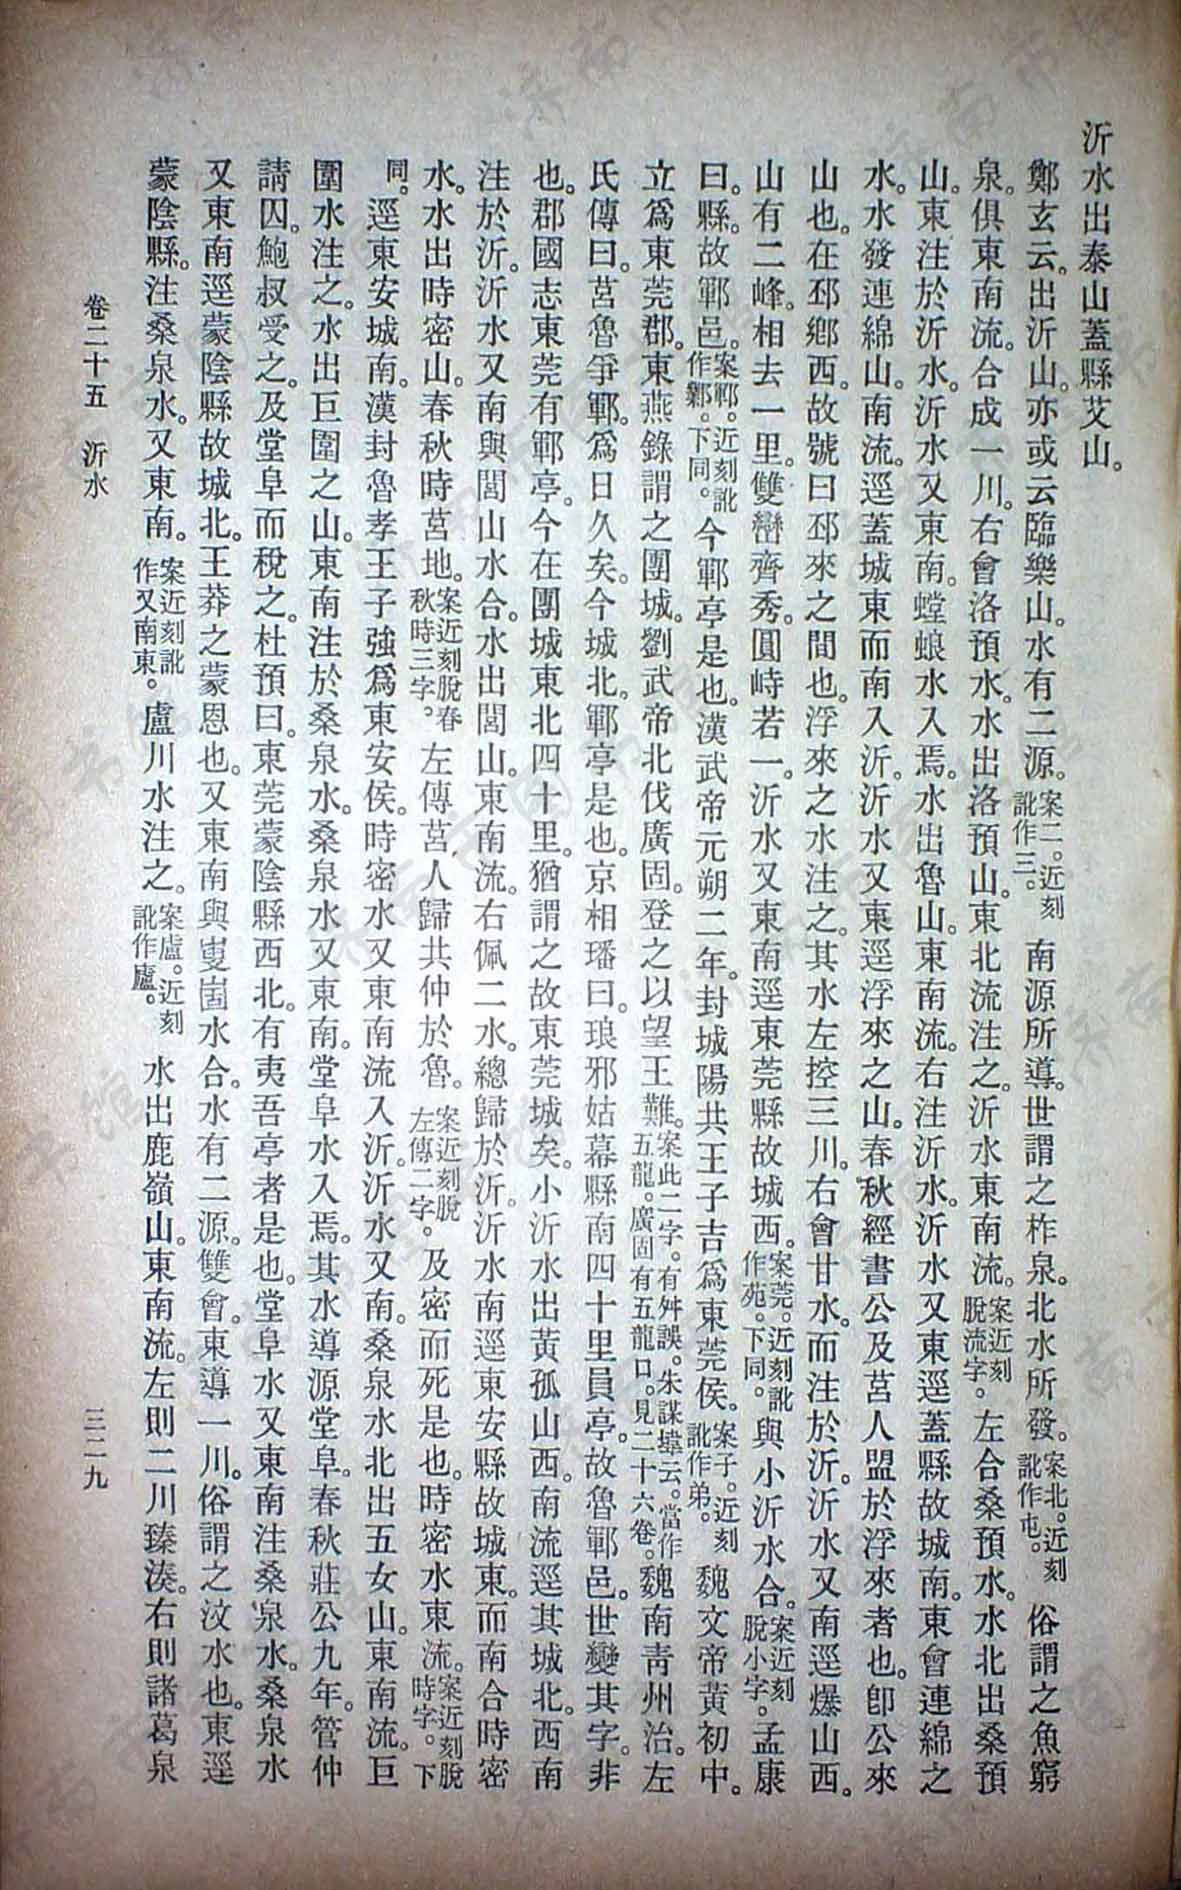 沂水出泰山蓋縣艾山。
鄭玄云。出沂山。亦或云臨樂山。水有二源。案二。近刻訛作三。南源所導。世謂之柞泉。北水所發。案北。近刻訛作屯。俗謂之魚窮
泉。俱東南流。合成一川。右會洛預水。水出洛預山。東北流注之。沂水東南流。案近刻脫流字。左合桑預水。水北出桑預
山。東注於沂水。沂水又東南。螳蜋水入焉。水出魯山。東南流。右注沂水。沂水又東逕蓋縣故城南。東會連綿之
水。水發連綿山。南流。逕蓋城東而南入沂。沂水又東逕浮來之山。春秋經書公及莒人盟於浮來者也。卽公來
山也。在邳鄉西。故號曰邳來之間也。浮來之水注之。其水左控三川。右會甘水。而注於沂。沂水又南逕爆山西。
山有二峰。相去一里。雙巒齊秀。圓峙若一。沂水又東南逕東莞縣故城西。案莞。近刻訛作苑。下同。與小沂水合。案近刻脫小字。孟康
曰。縣。故鄆邑。案鄆。近刻訛作鄹。下同。今鄆亭是也。漢武帝元朔二年。封城陽共王子吉爲東莞侯。案子。近刻訛作弟。魏文帝黃初中。
立爲東莞郡。東燕錄謂之團城。劉武帝北伐廣固。登之以望王難。案此二字。有舛誤。朱謀㙔云。當作五龍。廣固有五龍口。見二十六卷。魏南靑州治。左
氏傳曰。莒魯爭鄆。爲日久矣。今城北。鄆亭是也。京相璠曰。琅邪姑幕縣南四十里員亭。故魯鄆邑。世變其字。非
也。郡國志東莞有鄆亭。今在團城東北四十里。猶謂之故東莞城矣。小沂水出黃孤山西。南流逕其城北。西南
注於沂。沂水又南與閭山水合。水出閭山。東南流。右佩二水。總歸於沂。沂水南逕東安縣故城東。而南合時密
水。水出時密山。春秋時莒地。案近刻脫春秋時三字。左傳莒人歸共仲於魯。案近刻脫左傳二字。及密而死是也。時密水東流。案近刻脫時字。下
同。逕東安城南。漢封魯孝王子強爲東安侯。時密水又東南流入沂。沂水又南。桑泉水北出五女山。東南流。巨
圍水注之。水出巨圍之山。東南注於桑泉水。桑泉水又東南。堂阜水入焉。其水導源堂阜。春秋莊公九年。管仲
請囚。鮑叔受之。及堂阜而稅之。杜預曰。東莞蒙陰縣西北。有夷吾亭者是也。堂阜水又東南注桑泉水。桑泉水
又東南逕蒙陰縣故城北。王莽之蒙恩也。又東南與叟崮水合。水有二源。雙會。東導一川。俗謂之汶水也。東逕
蒙陰縣。注桑泉水。又東南。案近刻訛作又南東。盧川水注之。案盧。近刻訛作廬。水出鹿嶺山。東南流。左則二川臻湊。右則諸葛泉
卷二十五 沂水
三二九